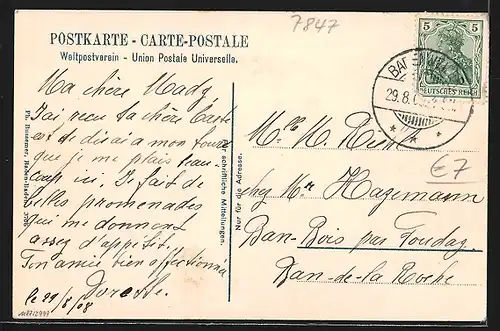 7847
POSTKARTE - CARTE-POSTALE
Weltpostverein - Union Postale Universelle.
5 5
DEUTSCHES REICH
BA
29.8.
Ma chère Mady,
J'ai reçu ta chère carte
et te dirai à mon tour
que je me plais beau,
coup ici. Je fait de
belles promenades
qui me donnent
assez d'appétit.
Ton amie bien affectionnée
Dorette.
le 29/8/08
Ph. Bussemer, Baden-Baden
ür schriftliche Mitteilungen.
Nur für die Adresse.
Mlle M.
chez Mr Hagemann
Ban-Bois par Fouday
Ban-de-la Roche
€7